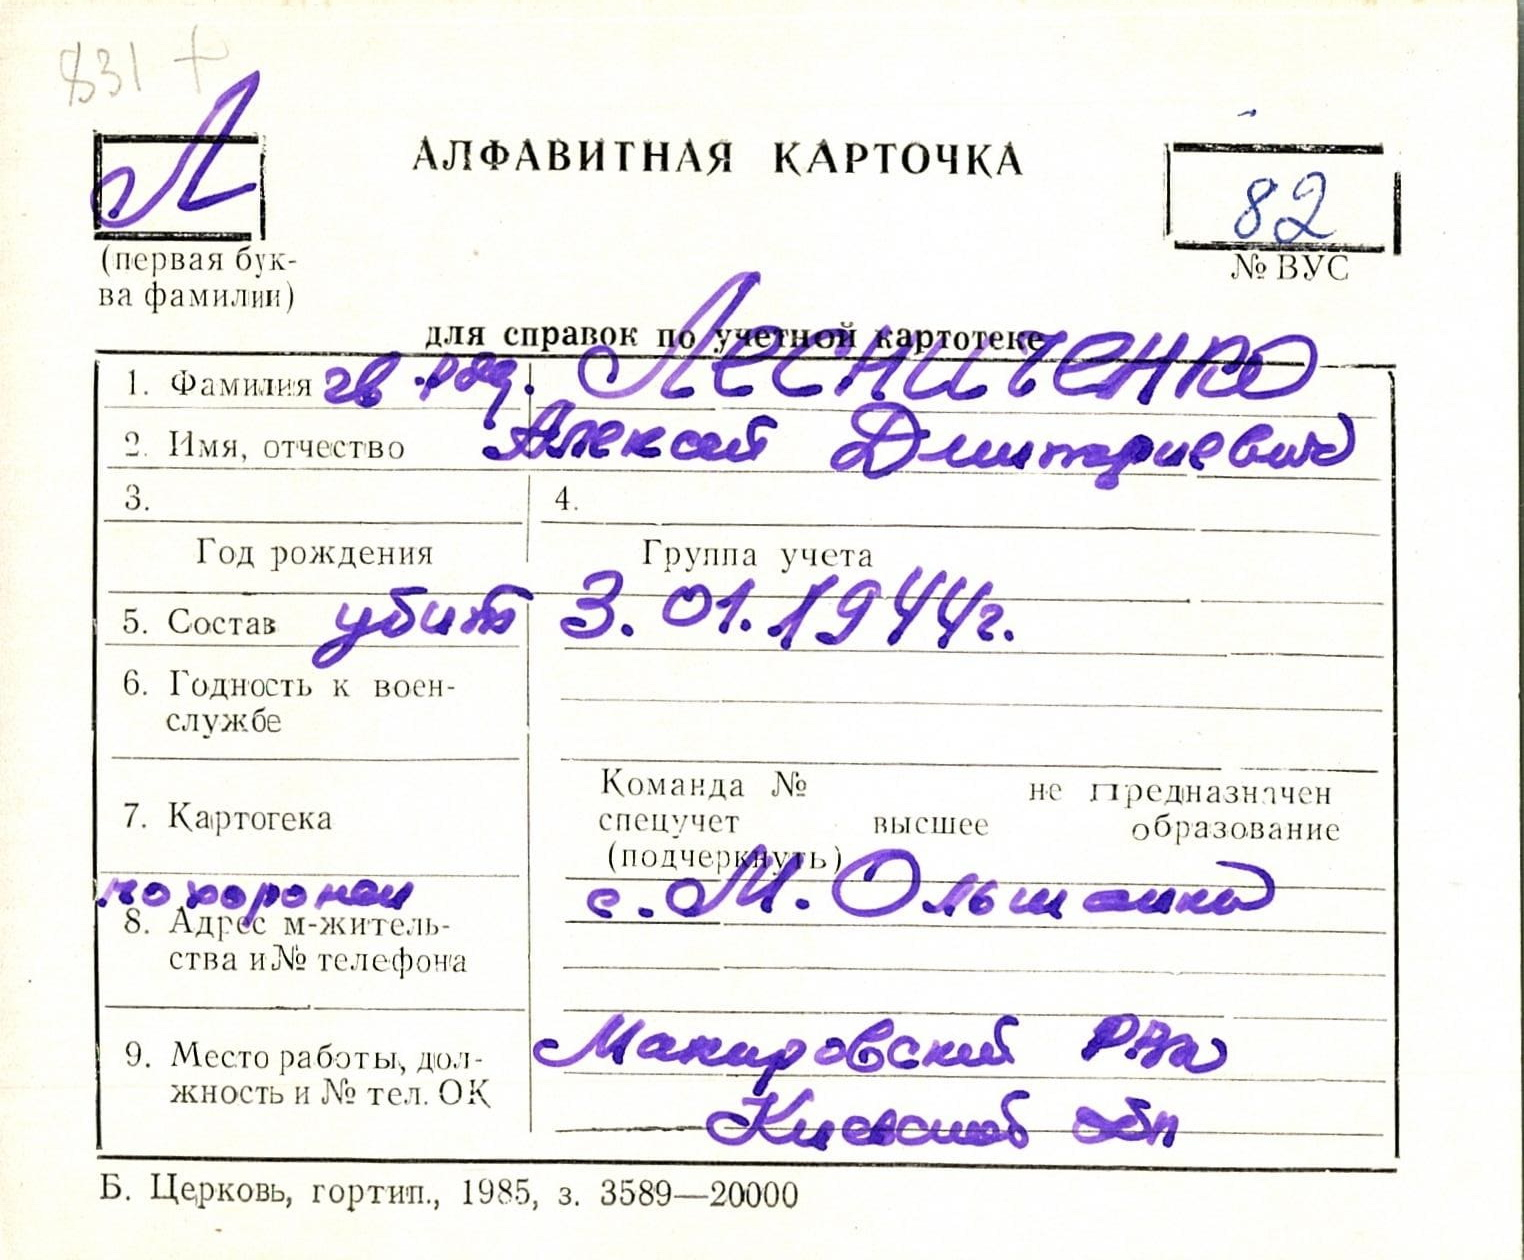 831 +
Л
АЛФАВИТНАЯ КАРТОЧКА
82
(первая бук-
ва фамилии)
№ ВУС
для справок по учетной картотеке
1. Фамилия гв. ряд. Лесниченко
2. Имя, отчество Алексей Дмитриевич
3. 4.
Год рождения Группа учета
5. Состав убит 3.01.1944г.
6. Годность к воен-
службе
7. Картотека
Команда № не предназначен
спецучет высшее образование
(подчеркнуть)
похоронен с. М. Ольшанка
8. Адрес м-житель-
ства и № телефона
9. Место работы, дол-
жность и № тел. ОК
Макаровский р-на
Киевской обл
Б. Церковь, гортип., 1985, з. 3589—20000